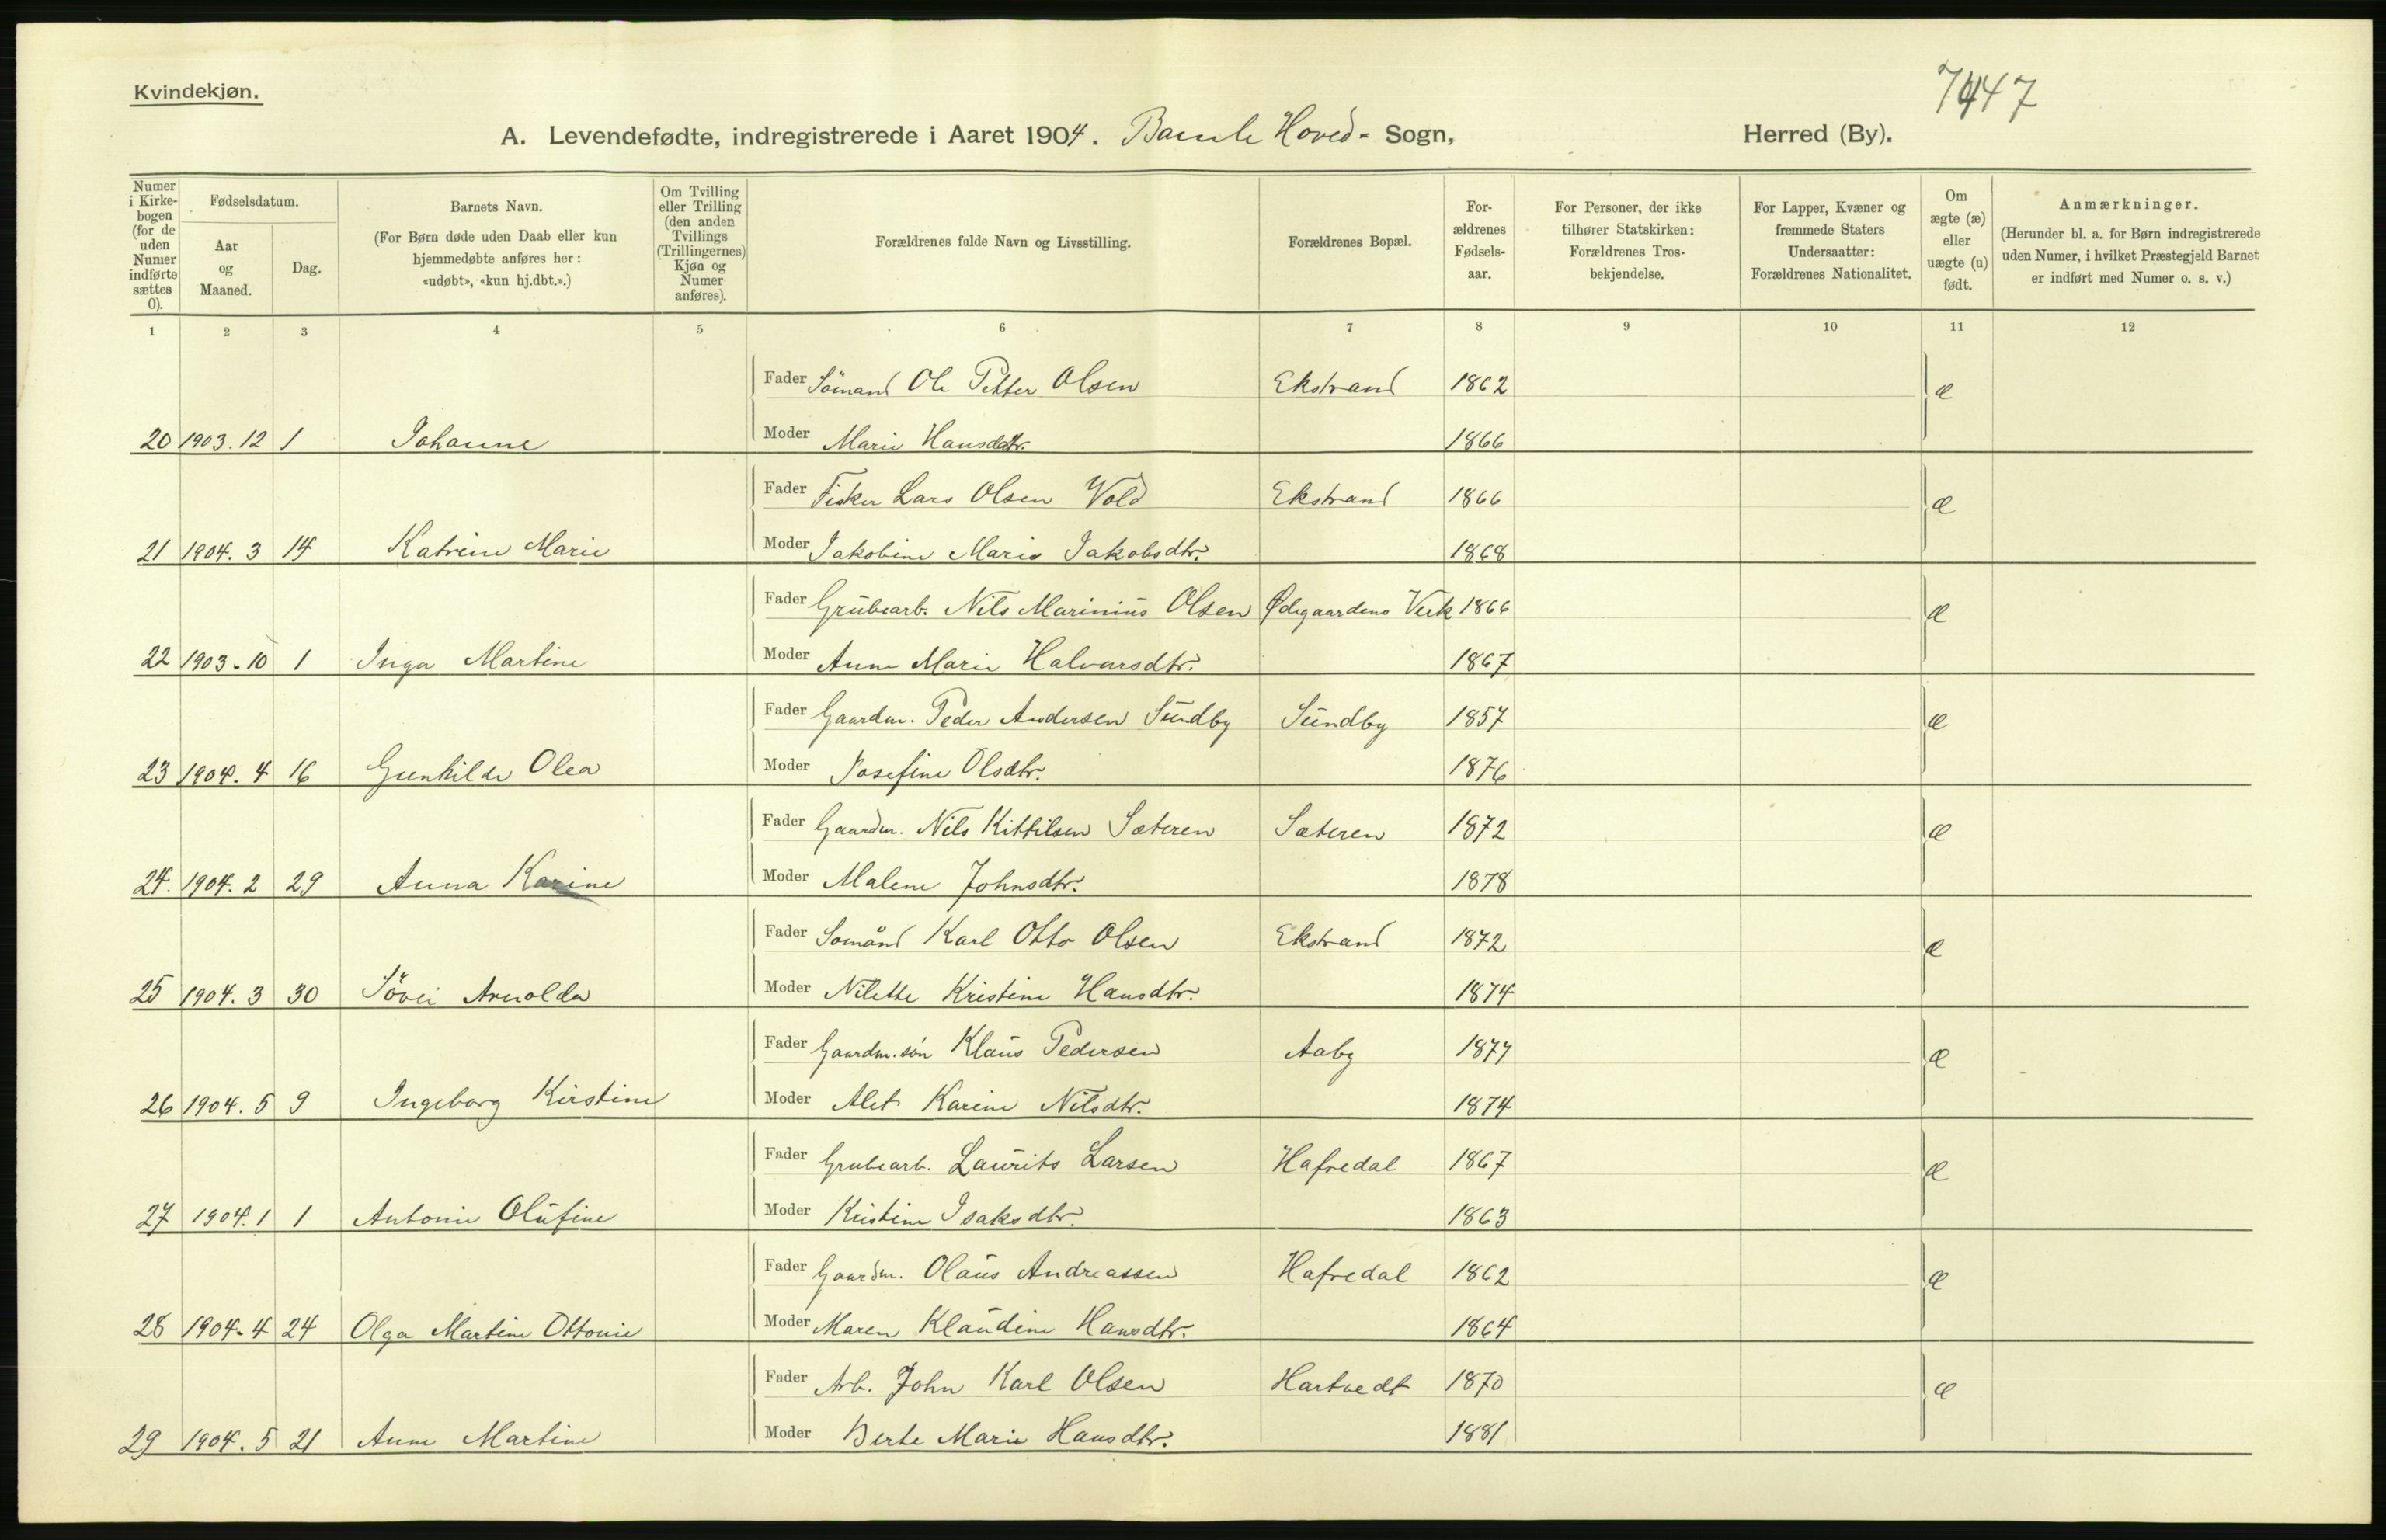 Kvindekjøn.
7447
A. Levendefødte, indregistrerede i Aaret 1904. Bamle Hoved- Sogn, Herred (By).
Numer i Kirkebogen (for de uden Numer indførte sættes 0).
Fødselsdatum.
Aar og Maaned.
Dag.
Barnets Navn.
(For Børn døde uden Daab eller kun hjemmedøbte anføres her: «udøbt», «kun hj.dbt.».)
Om Tvilling eller Trilling (den anden Tvillings (Trillingernes) Kjøn og Numer anføres).
Forældrenes fulde Navn og Livsstilling.
Forældrenes Bopæl.
Forældrenes Fødselsaar.
For Personer, der ikke tilhører Statskirken: Forældrenes Trosbekjendelse.
For Lapper, Kvæner og fremmede Staters Undersaatter: Forældrenes Nationalitet.
Om ægte (æ) eller uægte (u) født.
Anmærkninger.
(Herunder bl. a. for Børn indregistrerede uden Numer, i hvilket Præstegjeld Barnet er indført med Numer o. s. v.)
1 2 3 4 5 6 7 8 9 10 11 12
Fader Sömand Ole Petter Olsen Ekstrand 1862 æ
20 1903.12 1 Johanne Moder Marie Hansdatr. 1866
Fader Fisker Lars Olsen Vold Ekstrand 1866 æ
21 1904. 3 14 Katrine Marie Moder Jakobine Marie Jakobsdtr. 1868
Fader Grubearb. Nils Marinius Olsen Ødegaardens Verk 1866 æ
22 1903-10 1 Inga Martine Moder Anne Marie Halvorsdtr. 1867
Fader Gaardm. Peder Andersen Sundby Sundby 1857 æ
23 1904. 4 16 Gunhilde Olea Moder Josefine Olsdtr. 1876
Fader Gaardm. Nils Kittilsen Sæteren Sæteren 1872 æ
24. 1904. 2 29 Anna Karine Moder Malene Johnsdtr. 1878
Fader Sömand Karl Otto Olsen Ekstrand 1872 æ
25 1904. 3 30 Sövei Arnolda Moder Nilette Kristine Hansdtr. 1874
Fader Gaardm.sön Klaus Pedersen Aaby 1877 æ
26 1904. 5 9 Ingeborg Kirstine Moder Alet Karine Nilsdtr. 1874
Fader Grubearb. Laurits Larsen Hafredal 1867 æ
27 1904.1 1 Antonie Olufine Moder Kristine Isaksdtr. 1863
Fader Gaardm. Olaus Andreassen Hafredal 1862 æ
28 1904-4 24 Olga Martine Ottonie Moder Maren Klaudine Hansdtr. 1864
Fader Arb. John Karl Olsen Hartvedt 1870 æ
29 1904. 5 21 Anne Martine Moder Berte Marie Hansdtr. 1881